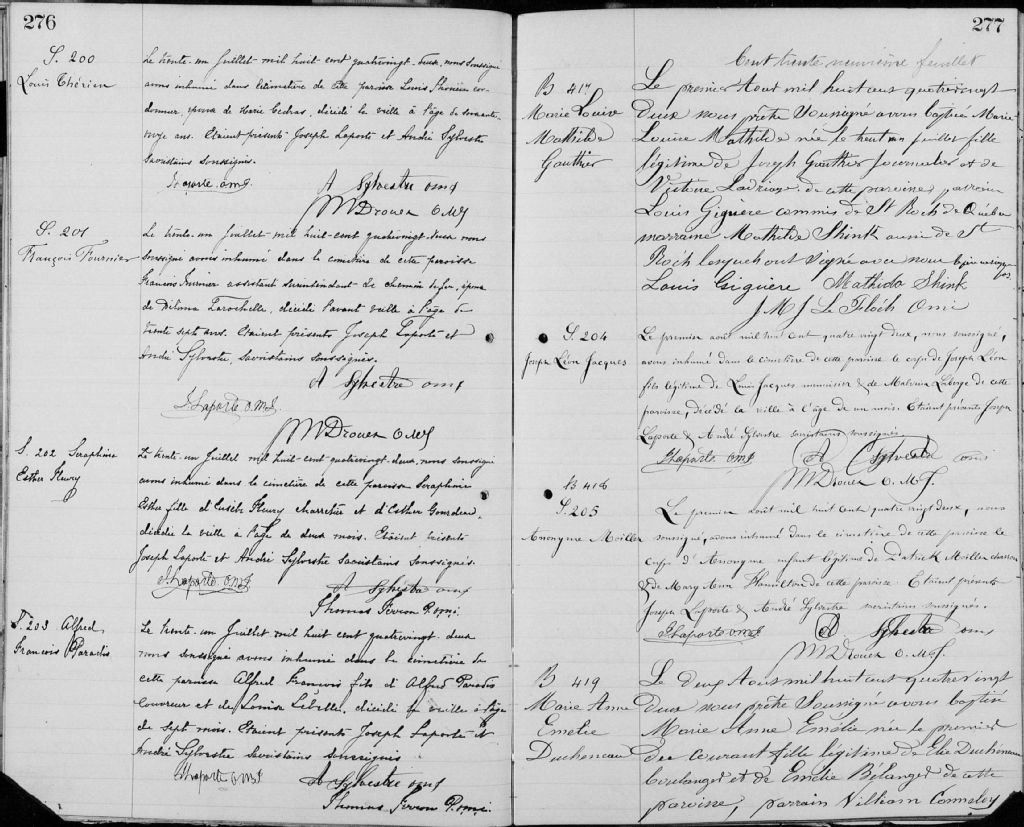 276
S. 200
Louis Thérien
Le trente-un Juillet mil huit cent quatrevingt-deux, nous soussigné
avons inhumé dans le cimetière de cette paroisse Louis Thérien cor-
donnier, époux de Marie Gedras, décédé la veille à l'âge de soixante
onze ans. Etaient présents Joseph Laporte et André Sylvestre
sacristains soussignés.
Laporte o.m.J.
A Sylvestre omJ
Drouen O.M.J
S. 201
François Fournier
Le trente-un Juillet mil huit-cent quatrevingt-deux nous
soussigné avons inhumé dans le cimetière de cette paroisse
Francois Fournier assistant surintendant de chemin de fer, époux
de Larochelle, décédé l'avant veille à l'âge de
trente sept ans. Etaient présents Joseph Laporte et
André Sylvestre, sacristains soussignés.
A Sylvestre omJ
J. Laporte o.m.J.
Drouen O.M.J
S. 202 Seraphine
Esther Fleury
Le trente-un Juillet mil huit-cent quatrevingt-deux, nous soussigné
avons inhumé dans le cimetière de cette paroisse Seraphine
Esther fille d'Eusèbe Fleury charretier et d'Esther Gourdeau,
décédée la veille à l'âge de deux mois. Etaient présents
Joseph Laporte et André Sylvestre Sacristains Soussignés.
J. Laporte o.m.J
A Sylvestre omJ
Thomas P.o.m.i.
S. 203 Alfred
Francois Paradis
Le trente-un Juillet mil huit cent quatrevingt-deux
nous soussigné avons inhumé dans le cimetière de
cette paroisse Alfred Francois fils d'Alfred Paradis
Couvreur et de Louisa Lebelle, décédé la veille à l'âge
de sept mois. Etaient présents Joseph Laporte et
André Sylvestre sacristains soussignés
J. Laporte o.m.J
A Sylvestre omJ
Thomas P.o.m.i.
277
Cent trente neuvième feuillet
B 417
Marie Louise
Mathilde
Gauthier
Le premier Aout mil huit cent quatre vingt
deux nous prêtre soussigné avons baptisé Marie
Louise Mathilde née le trent un juillet fille
légitime de Joseph Gauthier Journalier et de
Victoire de cette paroisse, parrain
Louis Giguère commis de St Roch de Québec
marraine Mathilde Shink aussi de St
Roch lesquels ont signé avec nous
Louis Giguère Mathilda Shink
J M J Le Floch Omi
S. 204
Joseph Léon Jacques
Le premier août mil huit cent quatre vingt deux, nous soussigné,
avons inhumé dans le cimetière de cette paroisse le corps de Joseph Léon
fils légitime de Louis Jacques menuisier & de Malvina Laberge de cette
paroisse, décédé la veille à l'âge de un mois. Etaient présents Joseph
Laporte & André Sylvestre sacristains soussignés
J Laporte omJ
A Sylvestre omi
Drouen O.M.J.
B 418
S. 205
Anonyme Moiller
Le premier août mil huit cent quatre vingt deux, nous
soussigné, avons inhumé dans le cimetière de cette paroisse le
corps d'Anonyme enfant légitime de Patrick Moiller
& de Mary Ann Hamilton de cette paroisse. Etaient présents
Joseph Laporte & André Sylvestre sacristains soussignés.
J Laporte o.m.J
A Sylvestre omJ
Drouen O.M.J.
B 419
Marie Anne
Emélie
Ducheneau
Le deux Aout mil huit cent quatre vingt
deux nous prêtre Soussigné avons baptisé
Marie Anne Emélie née le premier
du courant fille légitime de Elie Duchêneau
boulanger et de Emélie Bélanger de cette
paroisse, parrain William Conneley